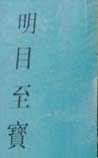 明目至寶